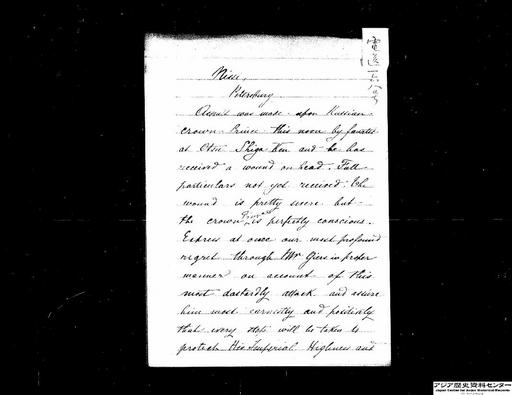 Nissi,
Petersburg.
Assault was made upon Russian
crown Prince this noon by fanatic
at Otsu Shiga Ken and he has
received a wound on head. Full
particulars not yet received. The
wound is pretty severe but
the crown Prince is perfectly conscious.
Express at once our most profound
regret through Mr Giers in proper
manner on account of this
most dastardly attack and assure
him most earnestly and positively
that every step will be taken to
protect His Imperial Highness and
アジア歴史資料センター
Japan Center for Asian Historical Records